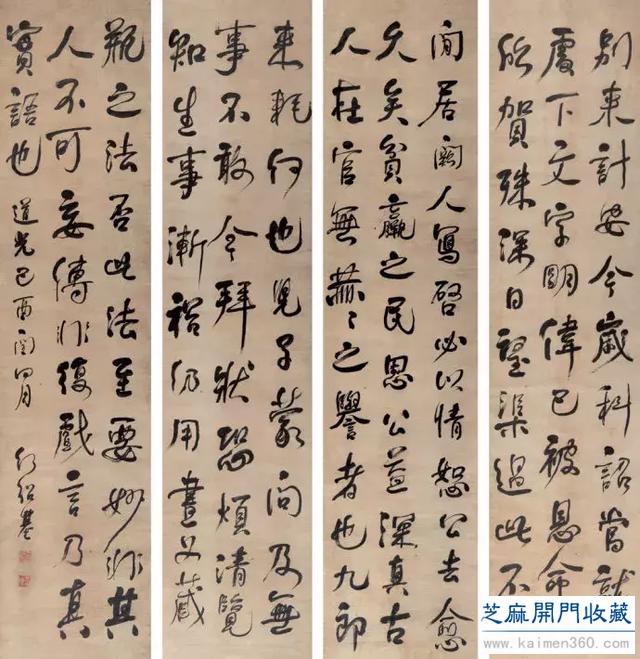 別來計安今歲科詔當就
處下文字明偉已被恩命
欣賀殊深日望渠過此不
閒居闕人寫啓必以情恕公去愈
久矣貧羸之民思公益深真古
人在官無赫〻之譽者也九郎
來耗何也兒子蒙問及無
事不敢令拜狀恐煩清覽
知生事漸裕仍用畫叉藏
瓶之法否此法至要妙非其
人不可妄傳非復戲言乃真
實語也 道光己酉閏四月 何紹基
芝麻開門收藏
www.kaimen360.com